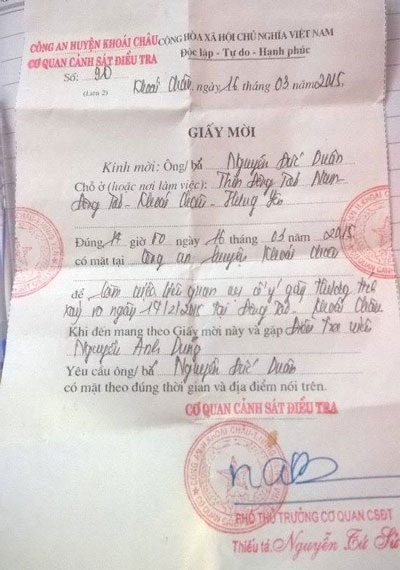 CÔNG AN HUYỆN KHOÁI CHÂU
CƠ QUAN CẢNH SÁT ĐIỀU TRA
Số: 90
(Liên 2)
CỘNG HÒA XÃ HỘI CHỦ NGHĨA VIỆT NAM
Độc lập - Tự do - Hạnh phúc
Khoái Châu, ngày 16 tháng 03 năm 2015.
GIẤY MỜI
Kính mời: Ông/ bà Nguyễn Đức Duân
Chỗ ở (hoặc nơi làm việc): Thôn Đông Tảo Nam-
Đông Tảo - Khoái Châu - Hưng Yên
Đúng giờ ngày 16 tháng 03 năm 2015
có mặt tại Công an huyện Khoái Châu
để Làm việc quan vụ cố ý gây thương tích
xảy ra ngày 19/2/2015 tại Đông Tảo - Khoái Châu
Khi đến mang theo Giấy mời này và gặp Điều tra viên
Nguyễn Anh Dũng
Yêu cầu ông/ bà Nguyễn Đức Duân
có mặt theo đúng thời gian và địa điểm nói trên.
CƠ QUAN CẢNH SÁT ĐIỀU TRA
PHÓ THỦ TRƯỞNG CƠ QUAN CSĐT
Thiếu tá. Nguyễn